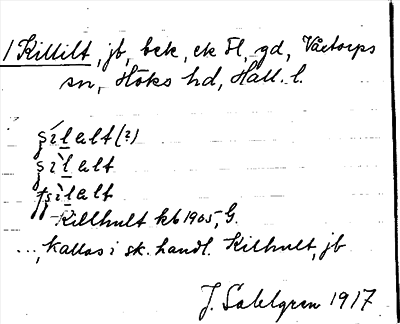 1 Killilt, jb, bek, ek Fl, gd, Våxtorps
sn, Höks hd, Hall. l.
şílalt (?)
şìlalt
tşìlalt
Killhult kb 1905, G.
..., kallas i sk. handl. Kilhult, jb
J. Sahlgren 1917